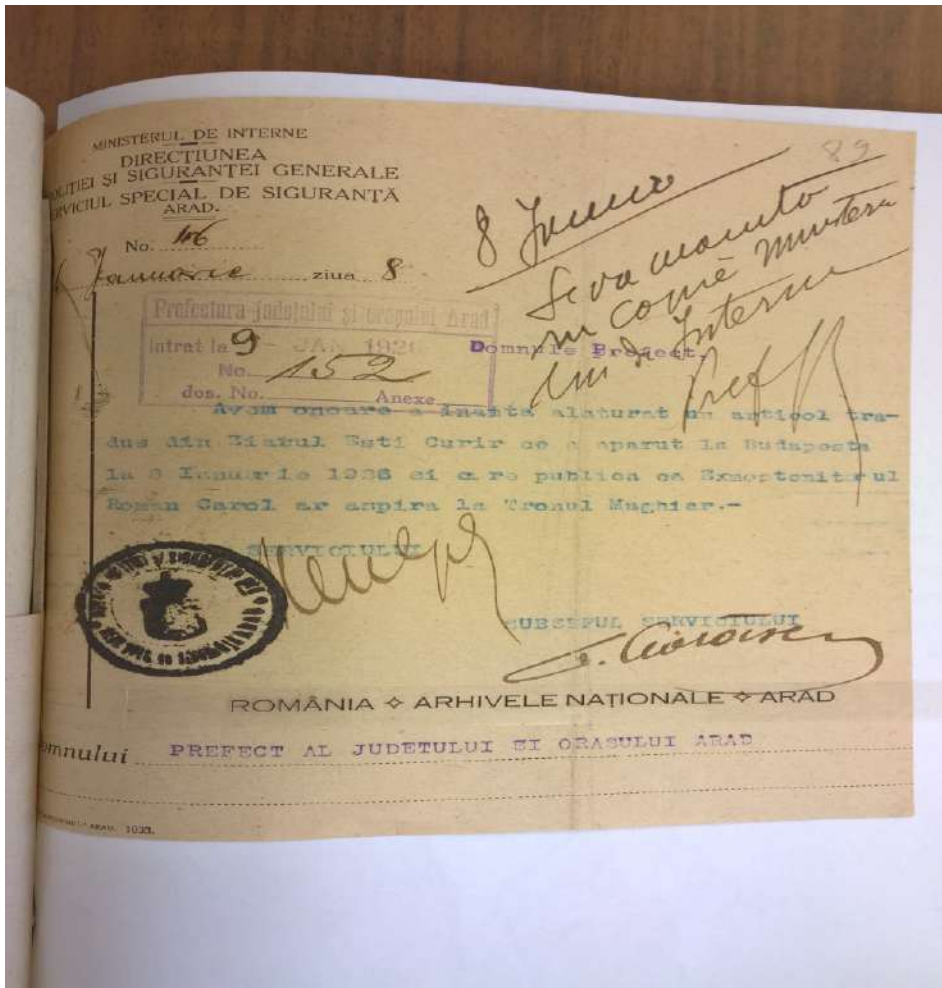 89
MINISTERUL DE INTERNE
DIRECȚIUNEA
POLIȚIEI ȘI SIGURANȚEI GENERALE
SERVICIUL SPECIAL DE SIGURANȚĂ
ARAD.
No. 106
Januarie ziua 8
8
Se va
in copie
de Interne
Pref
Prefectura județului și orașului Arad
Intrat la 9 - JAN 1926
No. 152
dos. No. Anexe
Domnule Prefect,
Avem onoare a inainta alaturat un articol tra-
dus din Ziarul Esti Curir ce a aparut la Budapesta
la 8 Ianuarie 1926 si care publica ca Exmostenitorul
Roman Carol ar aspira la Tronul Maghiar.-
SERVICIULUI
SUBSEFUL SERVICIULUI
ROMÂNIA ❖ ARHIVELE NAȚIONALE ❖ ARAD
omnului PREFECT AL JUDETULUI SI ORASULUI ARAD
ARAD. 1923.